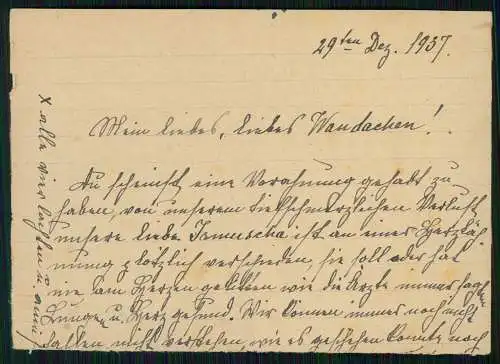 29ten Dez. 1937.
Mein liebes, liebes Wandachen!
Du scheinst eine Vorahnung gehabt zu
haben, von unserem tiefschmerzlichen Verlust,
unsere liebe ist an einer Herzläh
mung plötzlich verschieden, sie soll oder hat
nie am Herzen gelitten wie die Ärzte immer sagten
Lungen u. Herz gesund. Wir können immer noch nicht
nicht verstehen, wie es geschehen konnte noch
x alle